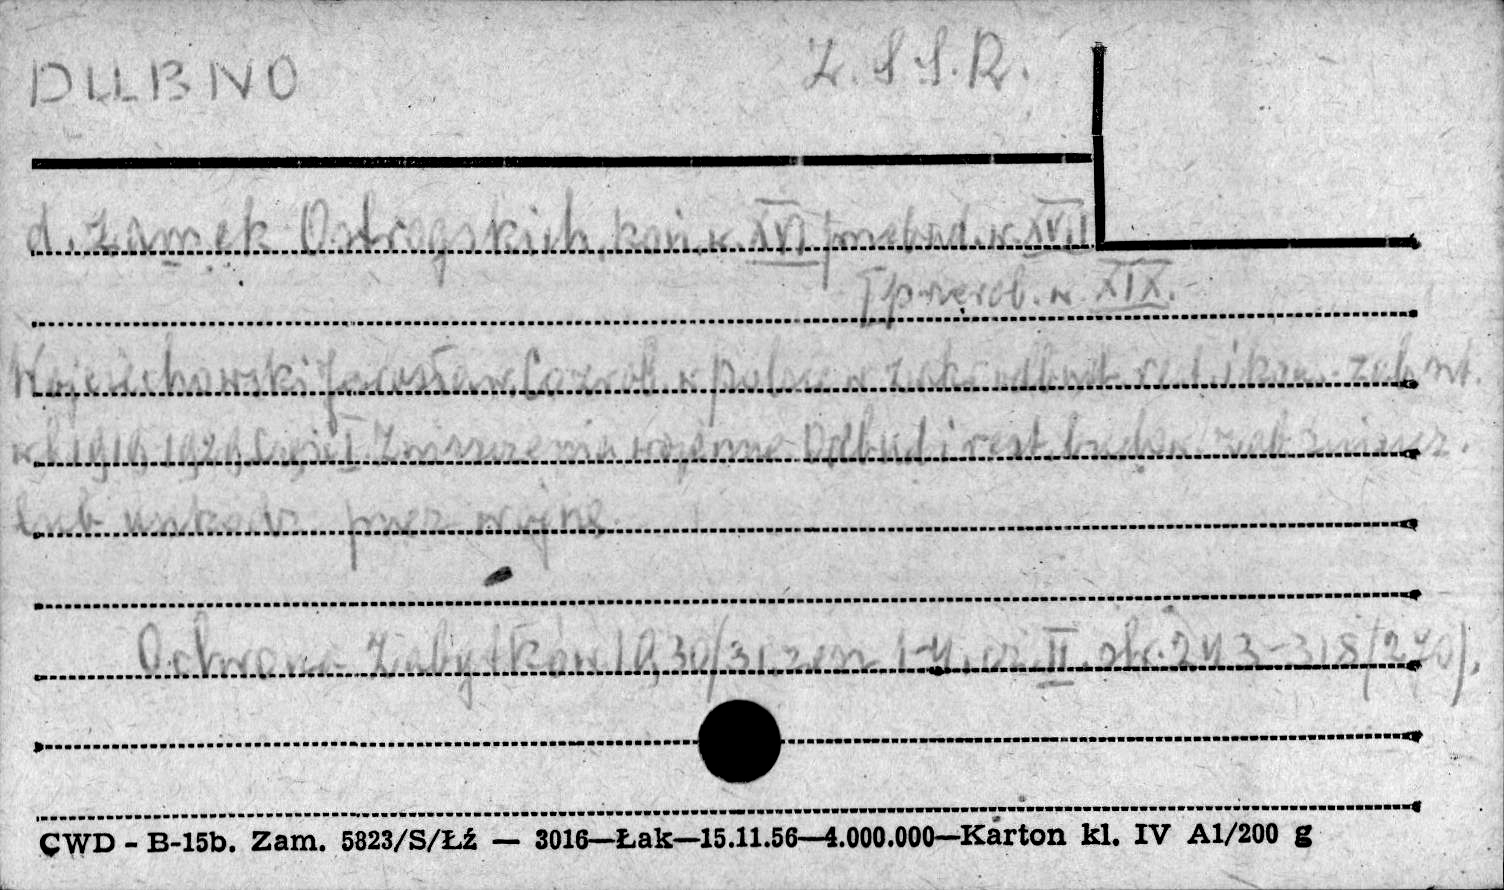 DUBNO Z.S.S.R.
d. zamek Ostrogskich, koń. w. XVI przebud. w. XVII
i przerob. w. XIX.
Wojciechowski Jarosław. Co zrob. w Polsce w zakr. odbud. rest. i kons. zab. szt.
w l. 1919-1929 Część I. Zniszczenia wojenne. Odbud. i rest. budow. zab. zniszcz.
lub uszkodz. przez wojnę.
Ochrona Zabytków 1930/31. zesz. 1-4. cz. II. str. 243-318 (270).
CWD - B-15b. Zam. 5823/S/Łź — 3016—Łak—15.11.56—4.000.000—Karton kl. IV A1/200 g